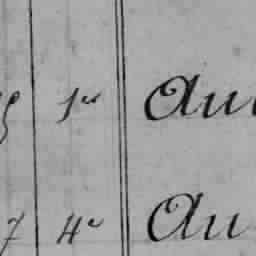 1er Au
7 4e Au